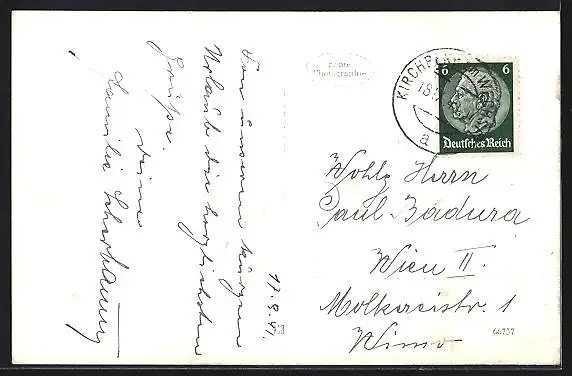 17.9.41.
Von unserem kurzen
Urlaub die herzlichsten
Grüße.
Deine
Familie
Echte
Photographie
KIRCHBERG AM WECHSEL
18.
a
6 6
Deutsches Reich
Wohlg. Herrn
Paul Badura
Wien II.
Molkereistr. 1
Wien